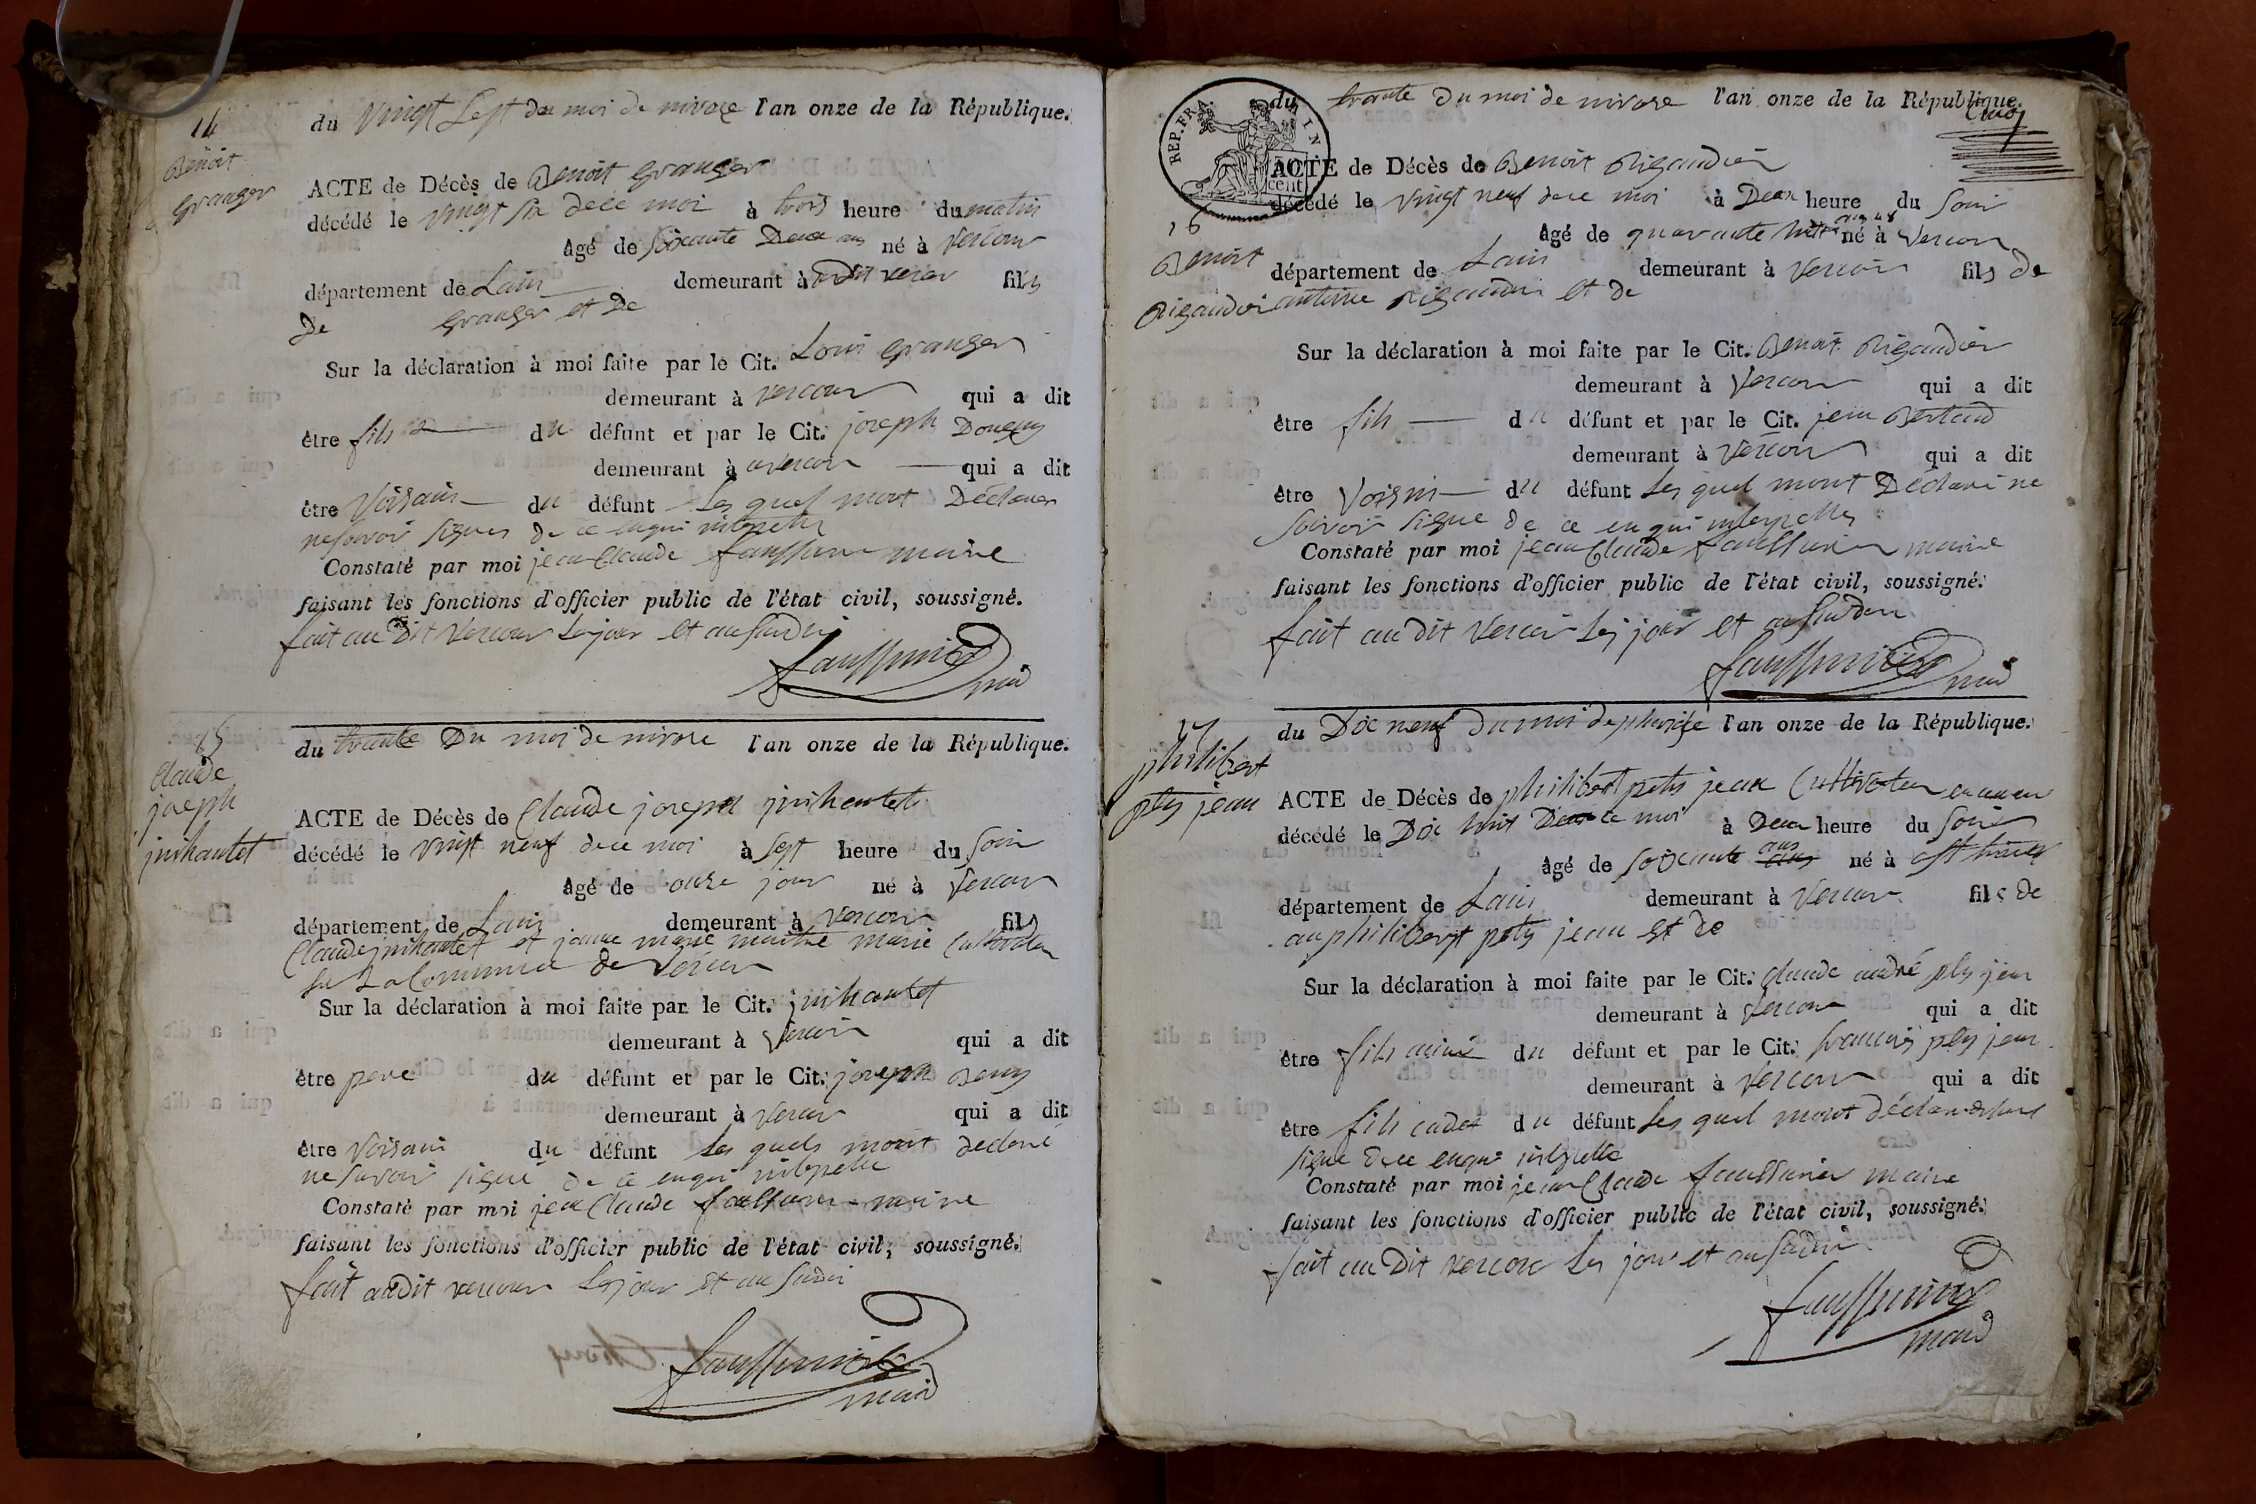 14
Benoit
granger
du Vingt Sept du moi de nivose l'an onze de la République.
ACTE de Décès de Benoit granger
décédé le vingt six dece moi à trois heure du matin
âgé de soixante Deux ans né à vercour
département de Lain demeurant à vercour fils
de granger et de
Sur la déclaration à moi faite par le Cit. Louis granger
demeurant à vercour qui a dit
être fils du défunt et par le Cit. joseph
demeurant à vercour qui a dit
être Voisain du défunt Les quel mont Déclarer
ne savoir signer de ce enqui interpelle
Constaté par moi jean Claude faussurier maire
faisant les fonctions d'officier public de l'état civil, soussigné.
fait au Dit Vercour Les jour et an susdit
faussurier
maire
15
Claude
joseph
du trante Du moi de nivose l'an onze de la République.
ACTE de Décès de Claude joseph
décédé le vingt neuf dece moi à Sept heure du Soir
âgé de onze jour né à Vercour
département de Lain demeurant à vercour fils
Claude et jeanne marie marie Cultivateur
Sur La Commune de Vercour
Sur la déclaration à moi faite par le Cit.
demeurant à Vercour qui a dit
être pere du défunt et par le Cit. joseph
demeurant à Vercour qui a dit
être Voisain du défunt Les quels mont declaré
ne Savoir signé de ce enqui interpelle
Constaté par moi jean Claude faussurier maire
faisant les fonctions d'officier public de l'état civil, soussigné.
fait audit vercour Les jour et an susdit
faussurier
maire
REP. FRA.
50
cent
du trante Du moi de nivose l'an onze de la République.
16
Benoit
Rigaudier
ACTE de Décès de Benoit Rigaudier
décédé le Vingt neuf dece moi à Deux heure du Soir
âgé de quarante huit né à Vercour
département de Lain demeurant à Vercour fils de
antoine Rigaudier et de
Sur la déclaration à moi faite par le Cit. Benoit Rigaudier
demeurant à Vercour qui a dit
être fils du défunt et par le Cit. jean Bertrand
demeurant à Vercour qui a dit
être Voisin du défunt Les quel mont Déclaré ne
savoir signe de ce en qui interpelles
Constaté par moi jean Claude faussurier maire
faisant les fonctions d'officier public de l'état civil, soussigné.
fait au dit Vercour Les jour et an susdit
faussurier
maire
17
philibert
ptis jean
du Dix neuf Du moi de pluviose l'an onze de la République.
ACTE de Décès de philibert petis jean Cultivateur
décédé le Dix huit De ce moi à Deux heure du Soir
âgé de soixante ans né à
département de Lain demeurant à Vercour fils de
philibert petis jean Et de
Sur la déclaration à moi faite par le Cit. Claude andré ptis jean
demeurant à Vercour qui a dit
être fils ainé du défunt et par le Cit. francois ptis jean
demeurant à Vercour qui a dit
être fils cadet du défunt Les quel mont
signe dece enqui interpelle
Constaté par moi jean Claude faussurier maire
faisant les fonctions d'officier public de l'état civil, soussigné.
fait au Dit vercour Les jour et an susdit
faussurier
maire